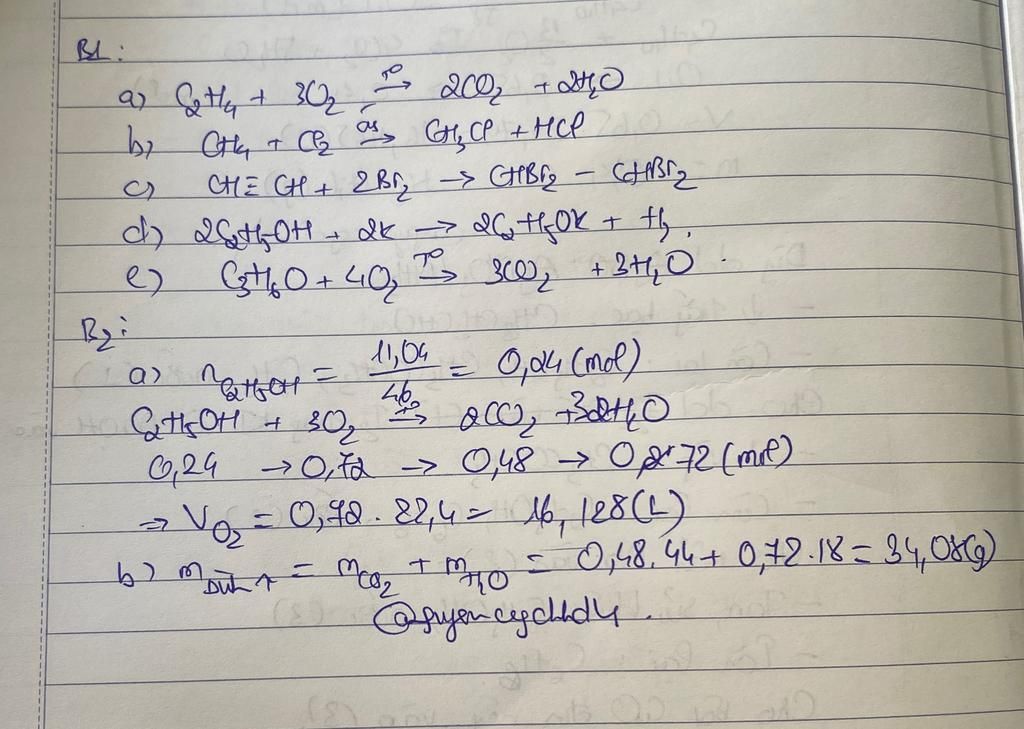 B1:
a) C₂H₄ + 3O₂ —t⁰→ 2CO₂ + 2H₂O
b) CH₄ + Cl₂ —ás→ CH₃Cl + HCl
c) CH≡CH + 2Br₂ → CHBr₂ – CHBr₂
d) 2C₂H₅OH + 2K → 2C₂H₅OK + H₂.
e) C₃H₆O + 4O₂ —t⁰→ 3CO₂ + 3H₂O.
B2:
a) n C₂H₅OH = 11,04/46 = 0,24 (mol)
C₂H₅OH + 3O₂ —t⁰→ 2CO₂ + 3H₂O
0,24 → 0,72 → 0,48 → 0,72 (mol)
⇒ V O₂ = 0,72.22,4 = 16,128 (L)
b) m bình ↑ = m CO₂ + m H₂O = 0,48.44 + 0,72.18 = 34,08(g)